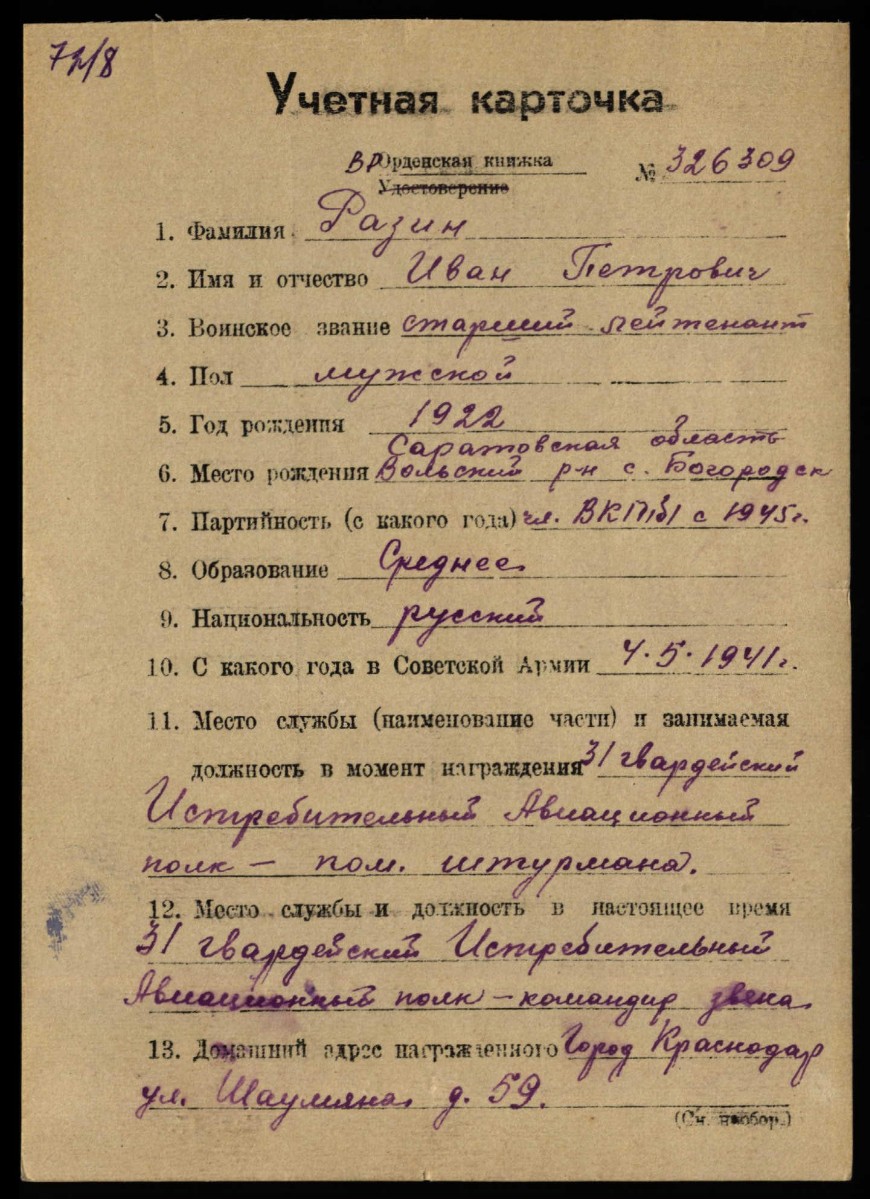 72/8
Учетная карточка
ВрОрденская книжка
Удостоверение
№ 326309
1. Фамилия Разин
2. Имя и отчество Иван Петрович
3. Воинское звание старший лейтенант
4. Пол мужской
5. Год рождения 1922
Саратовская область
6. Место рождения Вольский р-н с. Богородск
7. Партийность (с какого года) чл. ВКП(б) с 1945г.
8. Образование Среднее
9. Национальность русский
10. С какого года в Советской Армии 4.5.1941г.
11. Место службы (наименование части) и занимаемая
должность в момент награждения 31 гвардейский
Истребительный Авиационный
полк — пом. штурмана.
12. Место службы и должность в настоящее время
31 гвардейский Истребительный
Авиационный полк — командир звена
13. Домашний адрес награжденного Город Краснодар
ул. Шаумяна д. 59.
(См. на обор.)